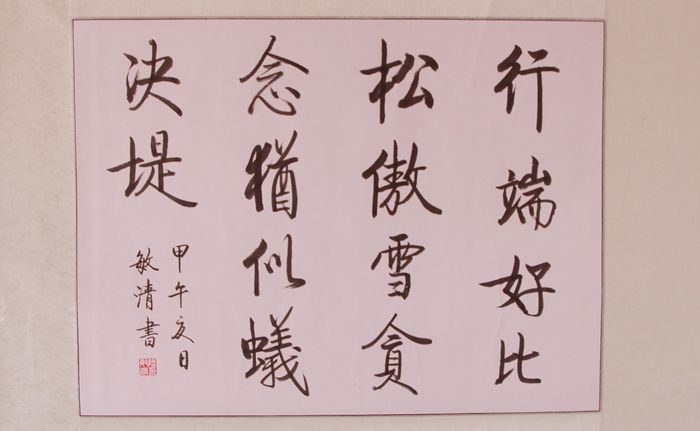 行端好比
松傲雪貪
念猶似蟻
决堤
甲午夏日
敏清書